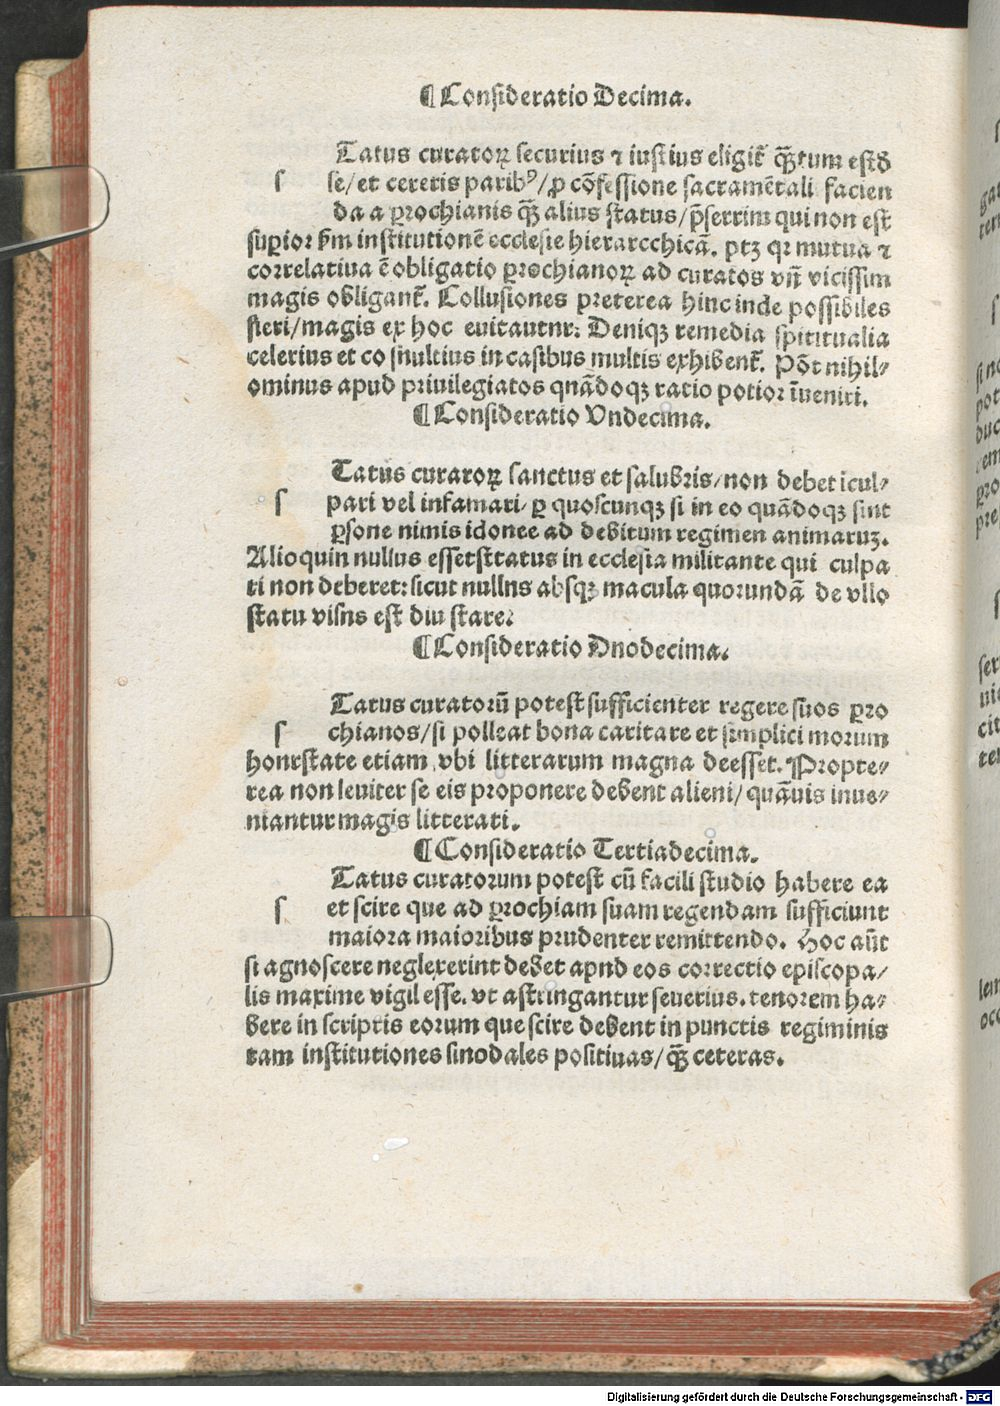 ¶Consideratio Decima.
Tatus curatoꝝ securius ⁊ iustius eligit̃ qͣ̃tum est ð
ſ se/et ceteris paribꝰ/ꝓ cõfessione sacramẽtali facien
da a ꝑrochianis qͣ̃ alius status/p̃sertim qui non est
suꝑior fm institutionẽ ecclesie hierarcchicã. ptꝫ qꝛ mutua ⁊
correlatiua ẽ obligatio ꝑrochianoꝝ ad curatos vñ vicissim
magis obligant̃. Collusiones preterea hinc inde possibiles
fieri/magis ex hoc euitautnr: Deniqꝫ remedia spititualia
celerius et co snultius in casibus multis exhibent̃. Põt nihil⸗
ominus apud priuilegiatos qnãdoqꝫ ratio potior ĩueniri.
¶Consideratio Vndecima.
Tatus curatoꝝ sanctus et salubris/non debet icul⸗
ſ pari vel infamari/ ꝑ quoscunqꝫ si in eo quãdoqꝫ sint
ꝑsone nimis idonee ad debitum regimen animaruꝫ.
Alioquin nullus essetsttatus in ecclesia militante qui culpa
ri non deberet: sicut nullns absqꝫ macula quorundã de vllo
statu visns est diu stare:
¶Consideratio Dnodecima.
Tatus curatorũ potest sufficienter regere suos ꝑro
ſ chianos/si polleat bona caritate et simplici morum
honestate etiam vbi litterarum magna deesset. Propte⸗
rea non leuiter se eis proponere debent alieni/ quãuis inue⸗
niantur magis litterati.
¶Consideratio Tertiadecima.
Tatus curatorum potest cũ facili studio habere ea
ſ et scire que ad ꝑrochiam suam regendam sufficiunt
maiora maioribus prudenter remittendo. Hoc aũt
si agnoscere neglexerint debet apnd eos correctio episcopa/
lis maxime vigil esse. vt astringantur seuerius. tenorem ha⸗
bere in scriptis eorum que scire debent in punctis regiminis
tam institutiones sinodales positiuas/qͣ̃ ceteras.
Digitalisierung gefördert durch die Deutsche Forschungsgemeinschaft - DFG